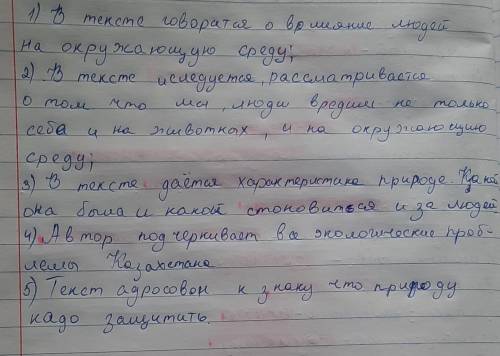 1) В тексте говорится о врлияние людей
на окружающую среду;
2) В тексте иследуется, рассматривается
о том что мы, люди вредим не только
себе и на животных, и на окружающую
среду;
3) В тексте даётся характеристика природе. Какой
она была и какой стоновиться из за людей
4) Автор подчеркивает все экологические проб-
лемы Казахстана
5) Текст адросован к знаку что природу
надо защитить.